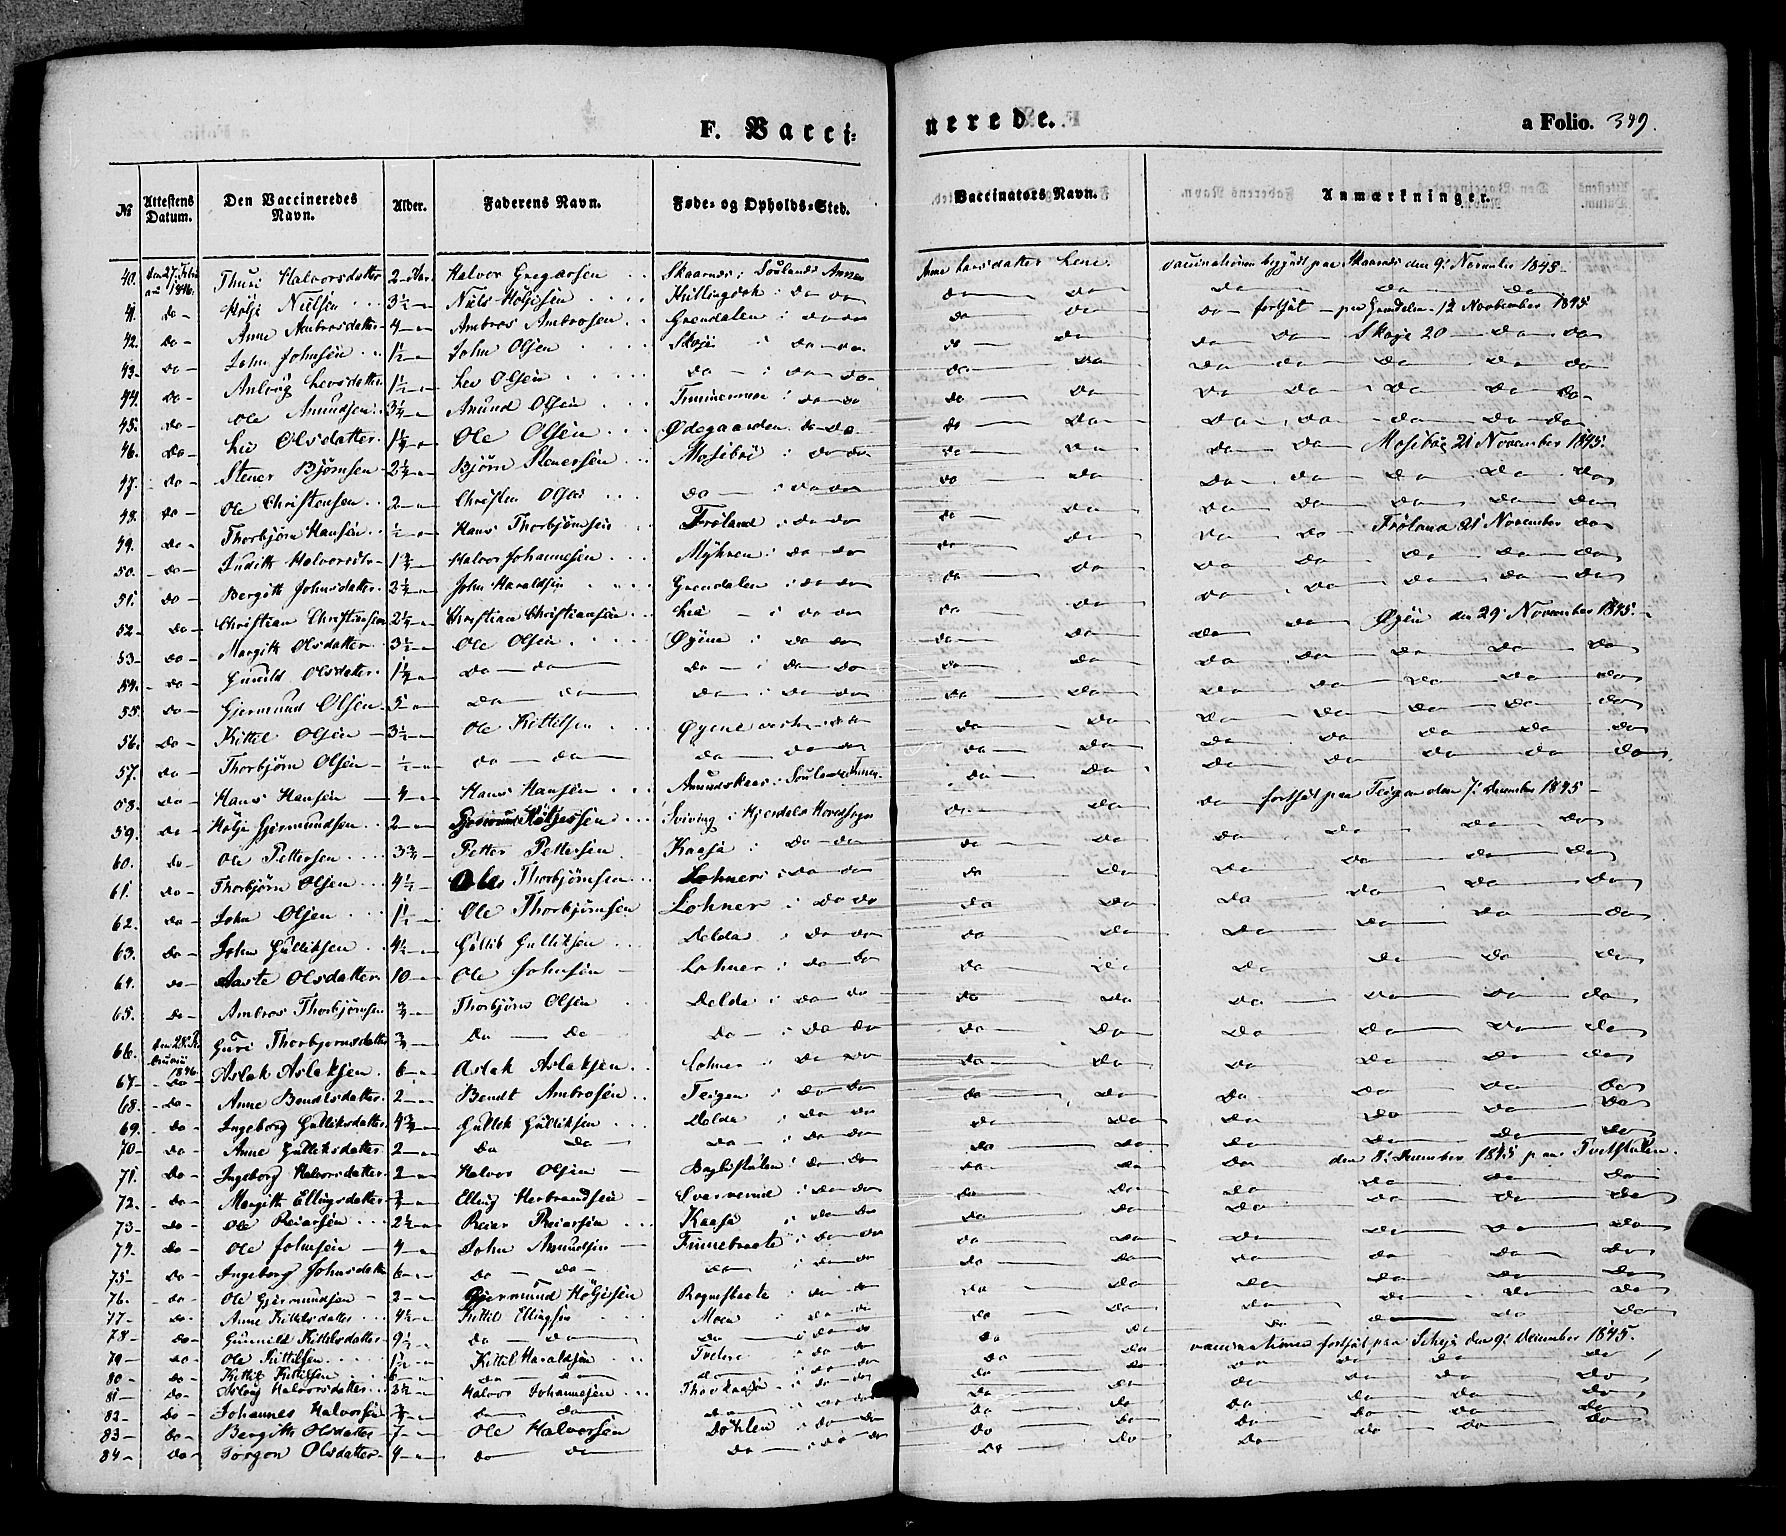 F. Vacci-
nerede.
a Folio. 349.
№ Attestens Datum. Den Vaccineredes Navn. Alder. Faderens Navn. Føde- og Opholds-Sted. Vaccinators Navn. Anmærkninger.
40. den 27. Febru 1846. Thuri Halvorsdatter 2 Halvor Gregarsen Skaarnæs i Soulands Annex Anne Larsdatter Lene. vaccinationen begyndt paa Skaarnes den 9. November 1845
41. do Hølje Nielsen 3 1/2 Niels Høljesen i do do do do do do do
42. do Anne Ambrosdatter 4 Ambros Ambrosen Grendalen i do do do do do fortsat paa Grendalen 12 November 1845
43. do John Johnsen 1/2 John Olsen Skoje i do do do do do do Skoje 20 do do
44. do Anlaug Levsdatter 1 1/2 Lev Olsen do i do do do do do do do do do
45. do Ole Amundsen 3 1/4 Amund Olsen i do do do do do do do do do
46. do Liv Olsdatter 1 1/4 Ole Olsen Ødegaarden do do do do do do do do do
47. do Stener Bjørnsen 2 1/2 Bjørn Stenersen Mosebøe i do do do do do do Mosebøe 21 November 1845.
48. do Ole Christensen 2 Christen Olsen do i do do do do do do do do do
49. do Thorbjørn Hansen 1/2 Hans Thorbjørnsen Frøland i do do do do do do do do do
50. do Judith Halvorsdtr 1 3/4 Halvor Johannesen Myhren i do do do do do do Frøland 21 November do
51. do Bergith Johnsdatter 2 1/2 John Haraldsen Grendalen i do do do do do do do do do
52. do Christian Christiansen 2 1/4 Christian Christiansen Lie i do do do do do do do do do
53. do Margith Olsdatter 3 1/2 Ole Olsen Øyene i do do do do do do Øyen den 29 November 1845.
54. do Gunild Olsdatter 1 1/4 do do do i do do do do do do do do do
55. do Gjermund Olsen 5 do do do i do do do do do do do do do
56. do Kittil Olsen 3 1/2 Ole Kittilsen Øyene vestre do do do do do do do do
57. do Thorbjørn Olsen 1/2 do do do do do do do do do do do do
58. do Hans Hansen 4 Hans Hansen Amundskaas i Soulands Annex do do do do do do do
59. do Hølje Gjermundsen 2 Gjermund Høljesen Sviving i Hjerdals Hovedsogn do do do fortsat paa Teigen den 7. december 1845
60. do Ole Pettersen 3 3/4 Petter Pettersen Kaasa i do do do do do do do do
61. do Thorbjørn Olsen 4 1/2 Ole Thorbjørnsen Lohner i do do do do do do do do
62. do John Olsen 1 1/2 Ole Thorbjørnsen Lohner i do do do do do do do do
63. do John Gulliksen 4 1/2 Gullik Gulliksen Delda i do do do do do do do do
64. do Aaste Olsdatter 10 Ole Johnsen Lohner i do do do do do do do do
65. do Ambros Thorbjørnsen 3/4 Thorbjørn Olsen Delda i do do do do do do do do
66. den 28. Februari 1846 Guri Thorbjørnsdatter 3/4 do do do i do do do do do do do do
67. do Aslak Aslaksen 6 Aslak Aslaksen Lohner i do do do do do do do do
68. do Anne Bendtsdatter 2 Bendt Ambrosen Teigen i do do do do do do do do
69. do Ingeborg Gulliksdatter 4 3/4 Gullik Gulliksen Delda i do do do do do do do do
70. do Anne Gulliksdatter 2 do do do i do do do do do do do do
71. do Ingeborg Halvorsdatter 2 Halvor Olsen i do do do do do den 8. december 1845 paa
72. do Margith Ellingsdatter 3/4 Elling Herbrandsen i do do do do do do do do
73. do Ole Reiarsen 2 1/2 Reiar Reiarsen Kaasa i do do do do do do do do
74. do Ole Johnsen 4 John Amundsen i do do do do do do do do
75. do Ingeborg Johnsdatter 6 do do do i do do do do do do do do
76. do Ole Gjermundsen 2 Gjermund Høljesen i do do do do do do do do
77. do Anne Kittilsdatter 4 1/2 Kittil Ellingsen Moen i do do do do do do do do
78. do Gunnild Kittilsdatter 9 1/2 do do do i do do do do do do do do
79. do Ole Kittilsen 1 1/2 Kittil Haraldsen i do do do do vaccinationen fortsat paa den 9. december 1845.
80. do Kittil Kittilsen 6 do do do i do do do do do do do do
81. do Aslaug Halvorsdatter 3 1/2 Halvor Johannesen i do do do do do do do do
82. do Johannes Halvorsen 3/4 do do do i do do do do do do do do
83. do Bergith Olsdatter 7 Ole Halvorsen Døhlen i do do do do do do do do
84. do Jorgon Olsdatter 4 do do do i do do do do do